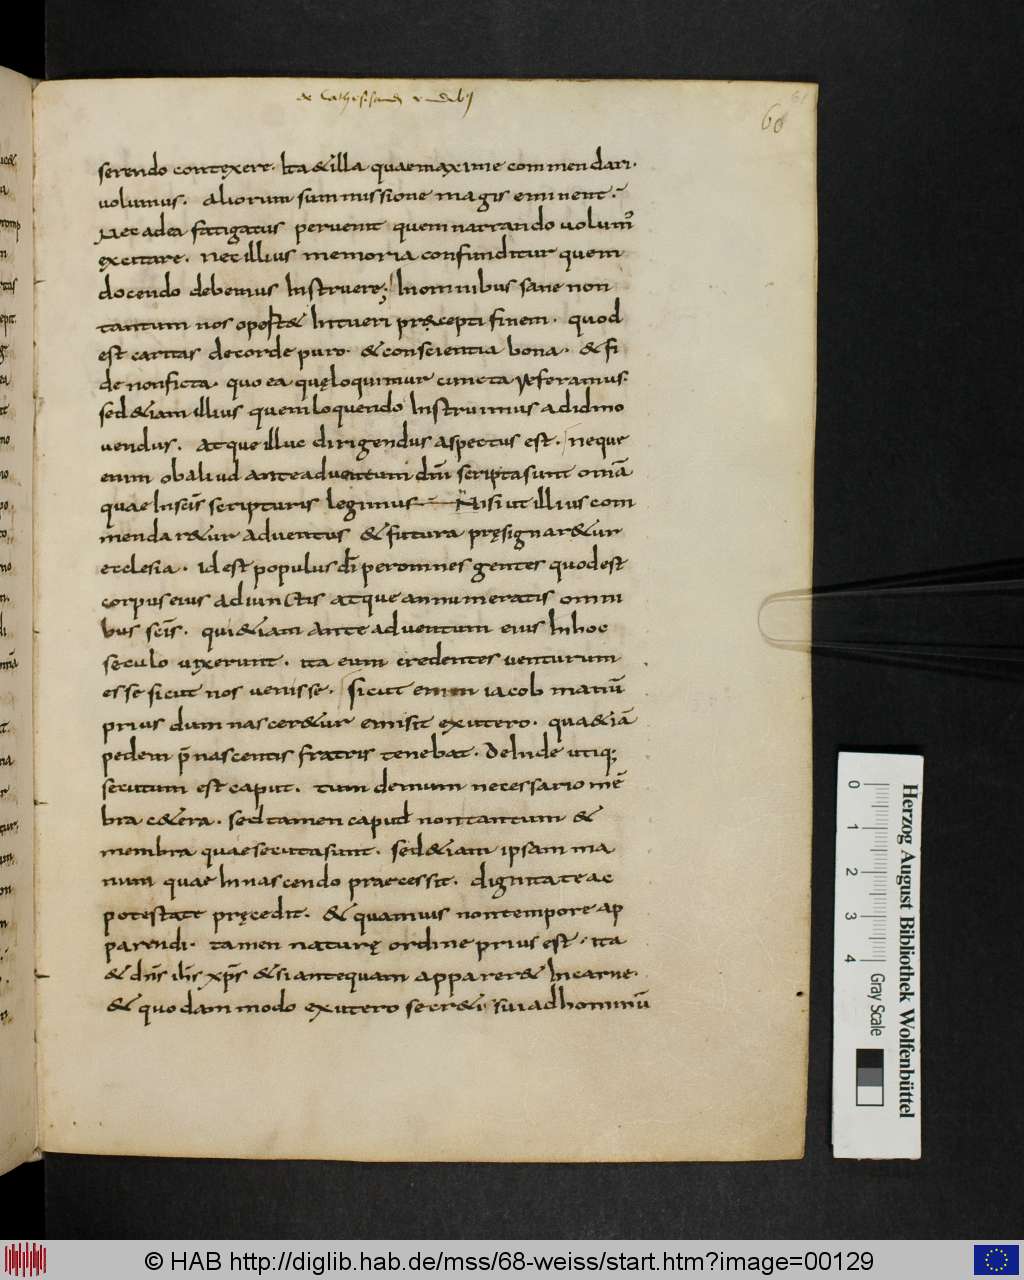 de Cathezisandis rudibus
60
serendo contęxere. Ita & illa quae maxime commendari.
volumus. aliorum summissione magis eminent.
Nec a dea fatigatus pervenit quem narrando volum᾽
ęxcitare. nec illius memoria confunditur quem
docendo debemus Instruere; In omnibus sane non
tantum nos oport& Intueri pręcepti finem. quod
est caritas de corde puro. & conscientia bona. & fi
de non ficta. quo ea quę loquimur cuncta referamus.
sed &iam illius quem loquendo Instruimus ad id mo
vendus. atque illuc dirigendus aspectus est. neque
enim ob aliud ante adventum dn̄i scripta sunt omā
quae In sc̄is scripturis legimus Nisi ut illius com
mendar&ur adventus & futura pręsignar&ur
ecclesia. id est populus dī per omnes gentes quod est
corpus eius adiunctis atque annumeratis omni
bus sc̄is. qui &iam ante adventum eius In hoc
sęculo vixerunt. ita eum credentes venturum
esse sicut nos venisse. Sicut enim iacob manū
prius dum nascer&ur emisit ex utero. qua &iā
pedem p̄nascentis fratris tenebat. deInde utiq;
secutum est caput. tum demum necessario mē
bra c&era. sed tamen capud non tantum &
membra quae secuta sunt. sed &iam ipsam ma
num quae In nascendo praecessit. dignitate ac
potestate pręcedit. & quamvis non tempore ap
parendi. tamen naturę ordine prius est. ita
& dn̄s ih̄s xp̄s & si antequam apparer& In carne.
& quodam modo ex utero secr&i sui ad hominū
Herzog August Bibliothek Wolfenbüttel
0 1 2 3 4 Gray Scale
© HAB http://diglib.hab.de/mss/68-weiss/start.htm?image=00129